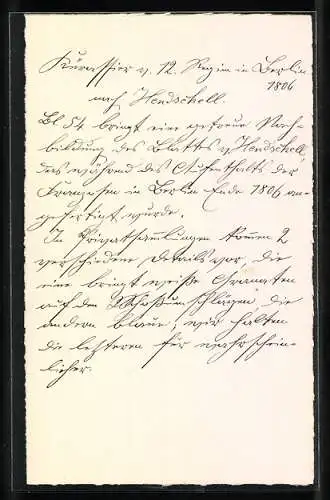 Kürassier v. 12. Regim in Berlin
1806
nach Hendschell.
Bl 54 bringt eine getreue Nach-
bildung des Blattes v. Hendschel,
das während des Aufenthalts der
Franzosen in Berlin Ende 1806 an-
gefertigt wurde.
In Privatsammlungen komen 2
verschiedene Details vor, die
eine bringt weiße Granaten
auf den Schoßumschlägen, die
andern blaue; wir halten
die letzteren für wahrschein-
licher.